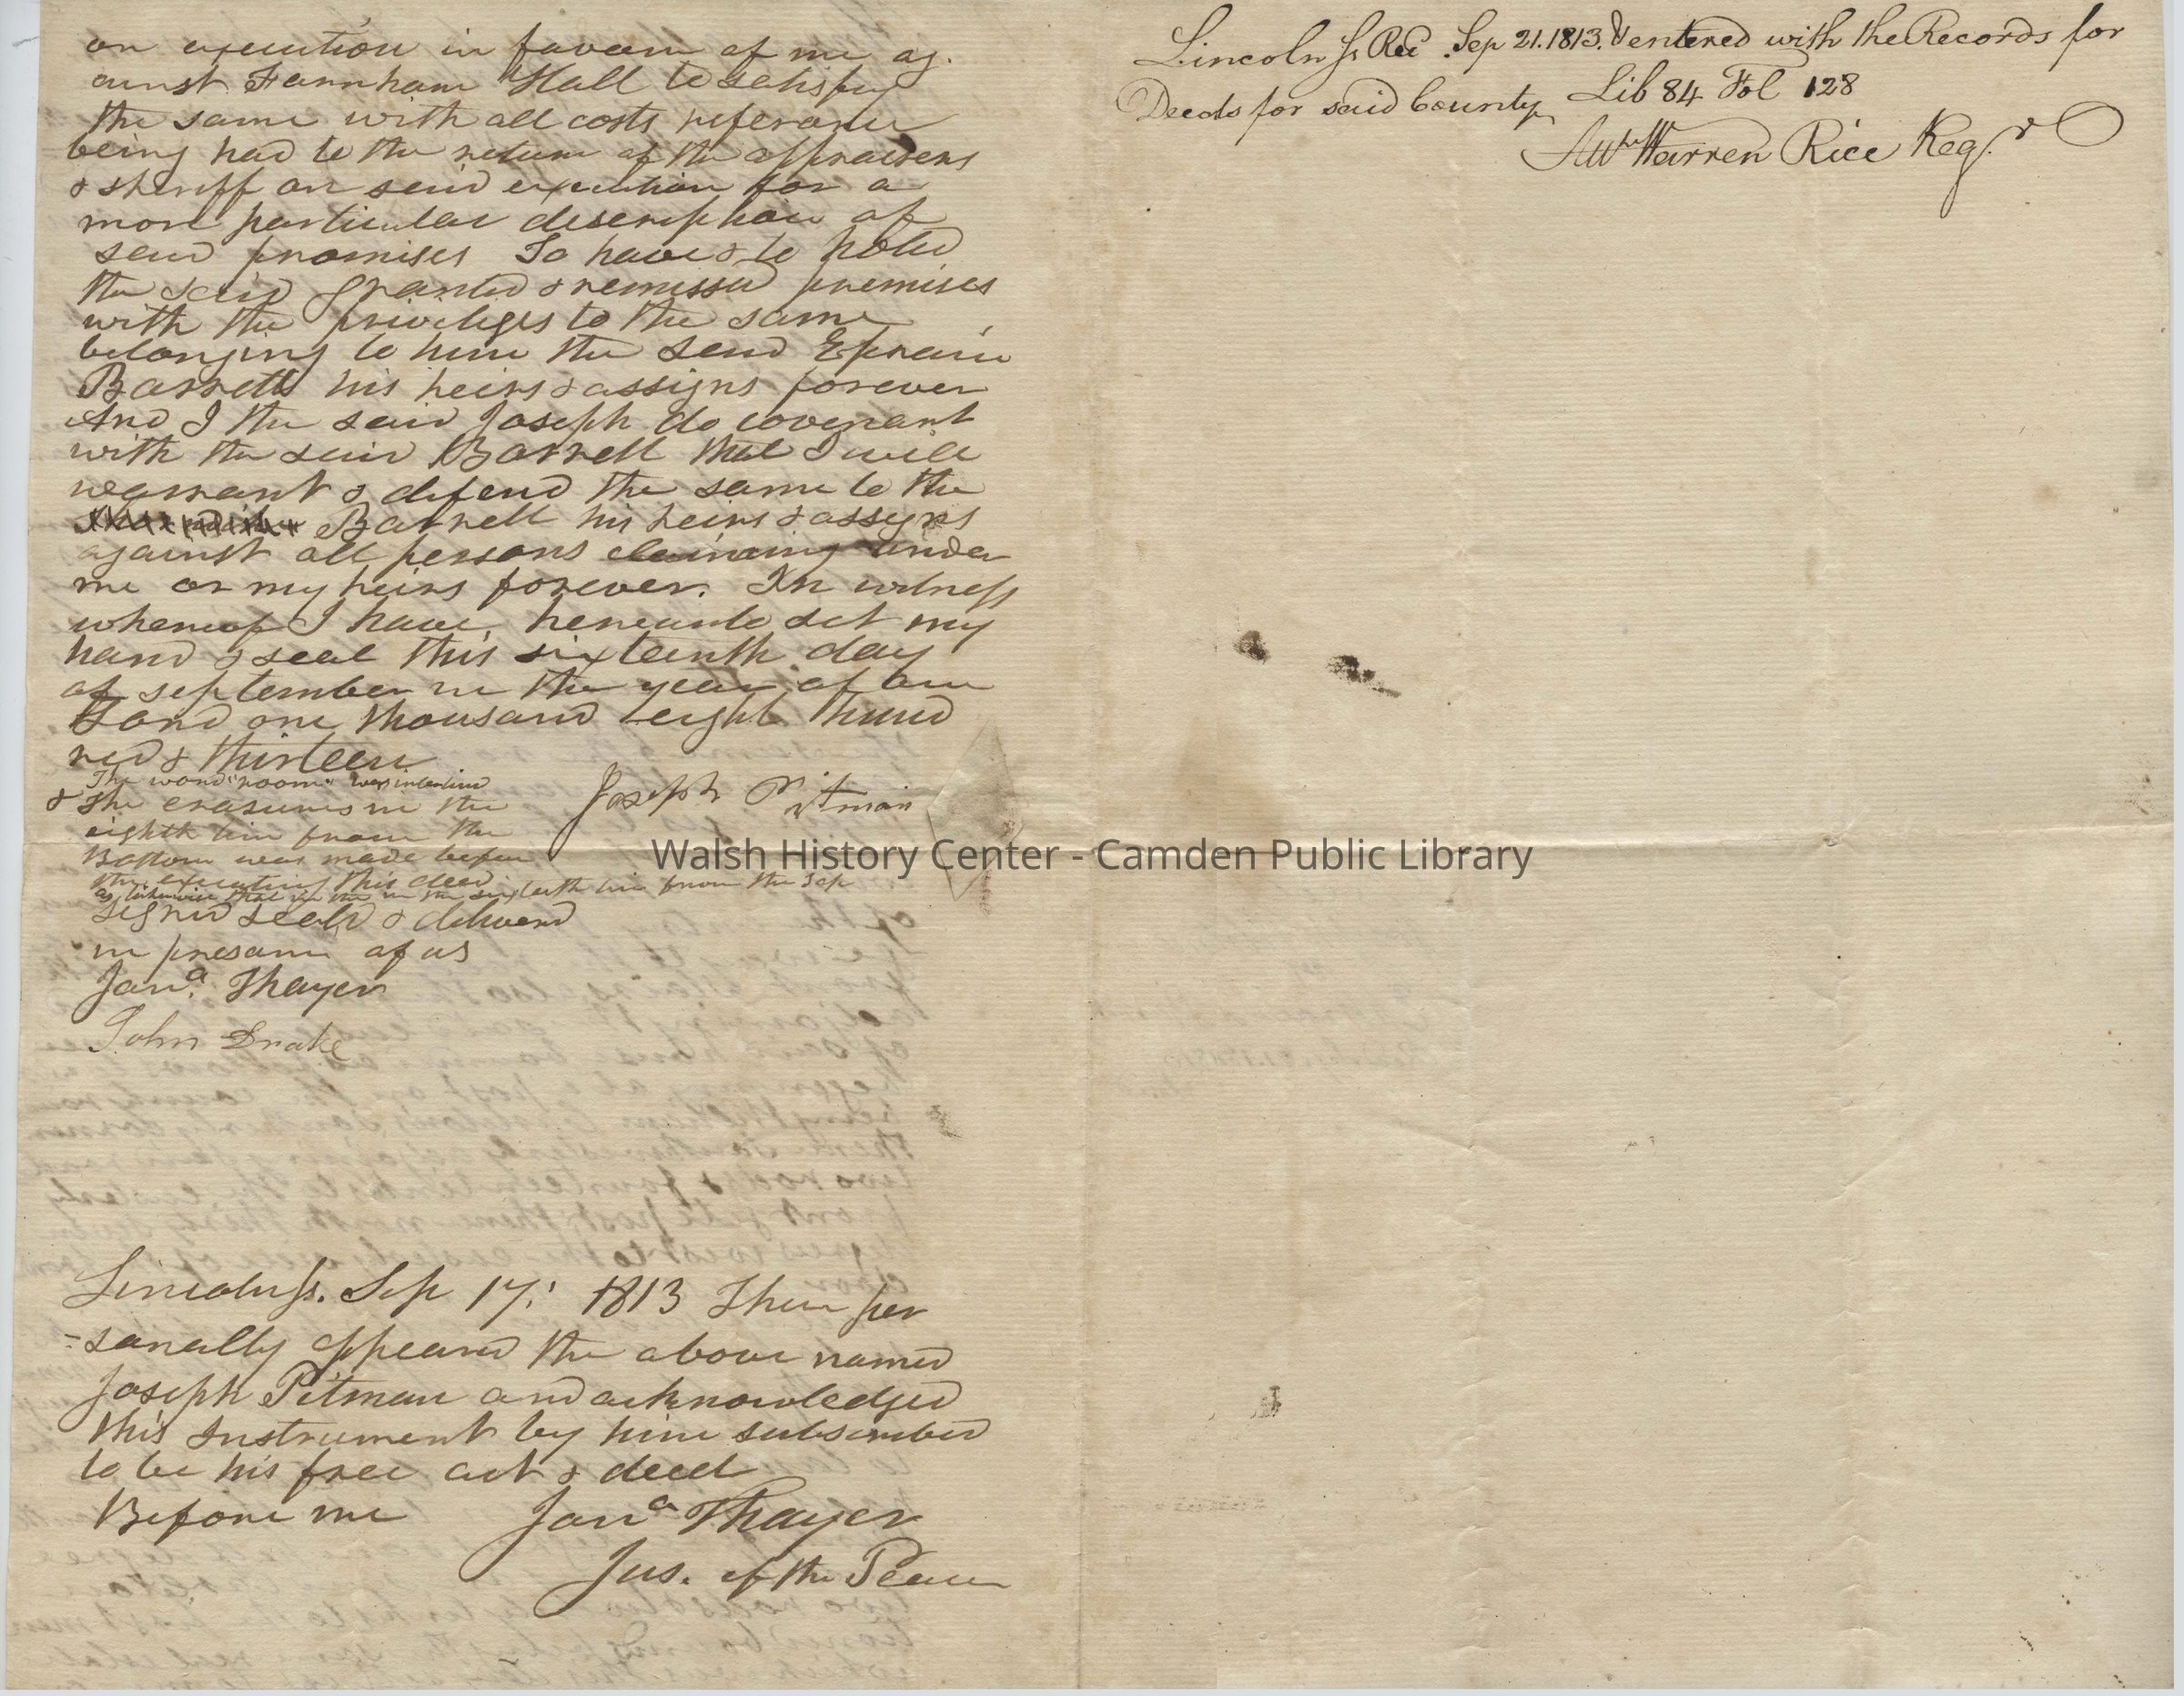 on execution in favour of me ag.
ainst Farnham Hall to satisfy
the same with all costs referance
being had to the return of the appraisers
& sheriff on said execution for a
more particular description of
said promises To have & to hold
the said granted & remissed premises
with the priveliges to the same
belonging to him the said Ephraim
Barrett his heirs & assigns forever
And I the said Joseph do covenant
with the said Barrett that I will
warrant & defend the same to the
Barrett his heirs & assigns
against all persons claiming under
me or my heirs forever. In witness
whereof I have hereunto set my
hand & seal this sixteenth day
of september in the year of our
Lord one thousand eight hund
red & thirteen
The word "room" was interlined
& the erasures in the
eighth line from the
Bottom was made before
the executing this deed
as likewise that in the in the sixteenth line from the top
Joseph Pitman
signed seald & deliverd
in presance of us
Jonª. Thayer
John Drake
Lincoln ss. Sep 17. 1813 Then per
-sonally appeared the above named
Joseph Pitman and acknowledged
this Instrument by him subscribed
to be his free act & deed
Before me Jonª Thayer
Jus. of the Peace
Lincoln ss Rec'd Sep 21. 1813. & entered with the Records for
Deeds for said County Lib 84 Fol 128
Att Warren Rice Reg.r
Walsh History Center - Camden Public Library